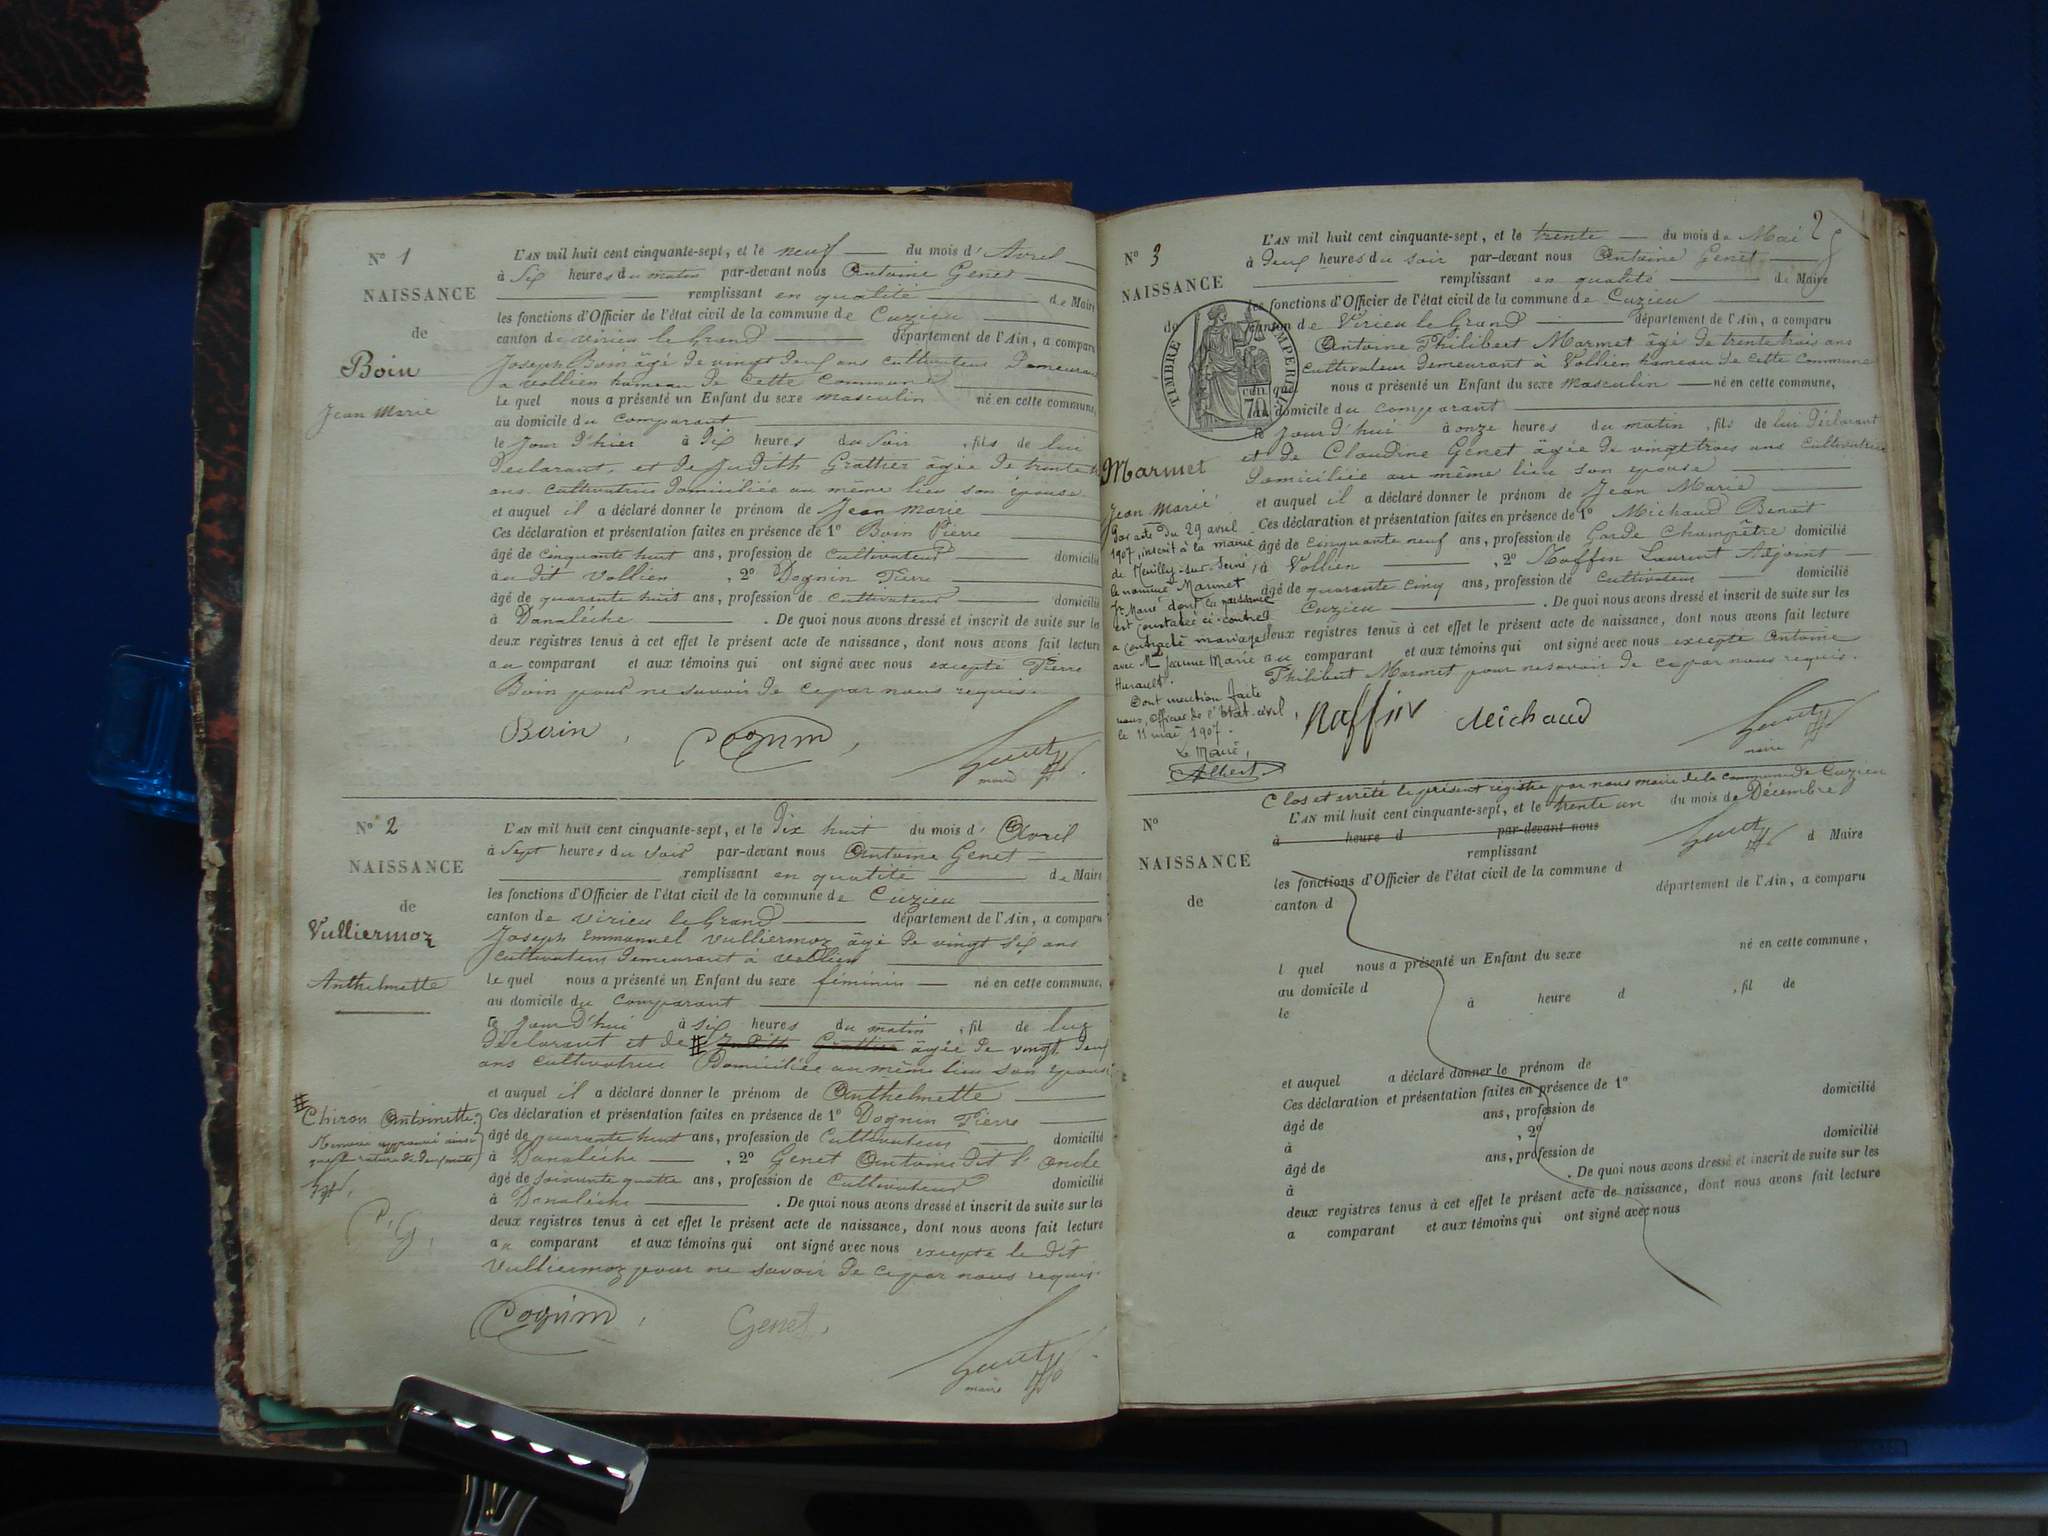 N° 1
NAISSANCE
de
Boin
Jean Marie
L'AN mil huit cent cinquante-sept, et le neuf du mois d'Avril
à Six heures du matin par-devant nous Antoine Genet
remplissant en qualité de Maire
les fonctions d'Officier de l'état civil de la commune de Cuzieu
canton de virieu le Grand département de l'Ain, a comparu
Joseph Boin âgé de vingt deux ans cultivateur Demeurant
a vollien hameau de cette commune
le quel nous a présenté un Enfant du sexe masculin né en cette commune,
au domicile du comparant
le Jour d'hier à dix heures du Soir , fils de lui
Déclarant, et de Judith Grathier âgée de trente
ans cultivatrice domiciliée au même lieu son épouse
et auquel il a déclaré donner le prénom de Jean Marie
Ces déclaration et présentation faites en présence de 1° Boin Pierre
âgé de cinquante huit ans, profession de cultivateur domicilié
au dit Vollien , 2° Dognin Pierre
âgé de quarante huit ans, profession de cultivateur domicilié
à Danaléche . De quoi nous avons dressé et inscrit de suite sur les
deux registres tenus à cet effet le présent acte de naissance, dont nous avons fait lecture
au comparant et aux témoins qui ont signé avec nous excepté Pierre
Boin pour ne savoir de ce par nous requis.
Boin, Dognin,
maire
N° 2
NAISSANCE
de
Vulliermoz
Anthelmette
L'AN mil huit cent cinquante-sept, et le Dix huit du mois d'Avril
à Sept heures du Soir par-devant nous Antoine Genet
remplissant en qualité de Maire
les fonctions d'Officier de l'état civil de la commune de Cuzieu
canton de virieu le Grand département de l'Ain, a comparu
Joseph Emmanuel Vulliermoz âgé de vingt six ans
cultivateur demeurant à Vollien
le quel nous a présenté un Enfant du sexe féminin né en cette commune,
au domicile du comparant
le Jour d'hui à six heures du matin , fil de luy
déclarant et de # Judith Grathier âgée de vingt deux
ans cultivatrice Domiciliée au même lieu son épouse
et auquel il a déclaré donner le prénom de Anthelmette
# Chiron Antoinette
Renvoi approuvé ainsi
que la rature de deux mots
P, G,
Ces déclaration et présentation faites en présence de 1° Dognin Pierre
âgé de quarante huit ans, profession de Cultivateur domicilié
à Danaléche , 2° Genet Antoine dit l'oncle
âgé de soixante quatre ans, profession de Cultivateur domicilié
à Danaléche . De quoi nous avons dressé et inscrit de suite sur les
deux registres tenus à cet effet le présent acte de naissance, dont nous avons fait lecture
au comparant et aux témoins qui ont signé avec nous excepté le dit
Vulliermoz pour ne savoir de ce par nous requis.
Dognin, Genet,
maire
2
N° 3
NAISSANCE
de
TIMBRE IMPERIAL
70
Marmet
Jean Marie
Par acte du 29 avril
1907, inscrit à la mairie
de Neuilly-sur-Seine,
le nommé Marmet
Jn Marie dont la naissance
est constatée ci-contre
a contracté mariage
avec Mme Jeanne Marie
Hurault.
Dont mention faite
nous, Officier de l'Etat-civil,
le 11 mai 1907.
Le Maire,
Albert
L'AN mil huit cent cinquante-sept, et le trente du mois de Mai
à deux heures du soir par-devant nous Antoine Genet
remplissant en qualité de Maire
les fonctions d'Officier de l'état civil de la commune de Cuzieu
canton de Virieu le Grand département de l'Ain, a comparu
Antoine Philibert Marmet âgé de trente trois ans
cultivateur demeurant à Vollien hameau de cette commune
quel nous a présenté un Enfant du sexe masculin né en cette commune,
au domicile du comparant
le Jour d'hui à onze heures du matin , fils de lui déclarant
et de Claudine Genet âgée de vingt trois ans cultivatrice
Domiciliée au même lieu son épouse
et auquel il a déclaré donner le prénom de Jean Marie
Ces déclaration et présentation faites en présence de 1° Michaud Benoit
âgé de cinquante neuf ans, profession de Garde Champêtre domicilié
à Vollien , 2° Raffin Laurent Adjoint
âgé de quarante cinq ans, profession de cultivateur domicilié
Cuzieu . De quoi nous avons dressé et inscrit de suite sur les
deux registres tenus à cet effet le présent acte de naissance, dont nous avons fait lecture
au comparant et aux témoins qui ont signé avec nous excepté Antoine
Philibert Marmet pour ne savoir de ce par nous requis.
Raffin Michaud
maire
Clos et arrêté le présent registre par nous maire de la commune de Cuzieu
N°
NAISSANCE
de
L'AN mil huit cent cinquante-sept, et le trente un du mois de Décembre
à heure d par-devant nous
remplissant d Maire
les fonctions d'Officier de l'état civil de la commune d
canton d département de l'Ain, a comparu
l quel nous a présenté un Enfant du sexe né en cette commune,
au domicile d
le à heure d , fil de
et auquel a déclaré donner le prénom de
Ces déclaration et présentation faites en présence de 1°
âgé de ans, profession de domicilié
à , 2°
âgé de ans, profession de domicilié
à . De quoi nous avons dressé et inscrit de suite sur les
deux registres tenus à cet effet le présent acte de naissance, dont nous avons fait lecture
a comparant et aux témoins qui ont signé avec nous